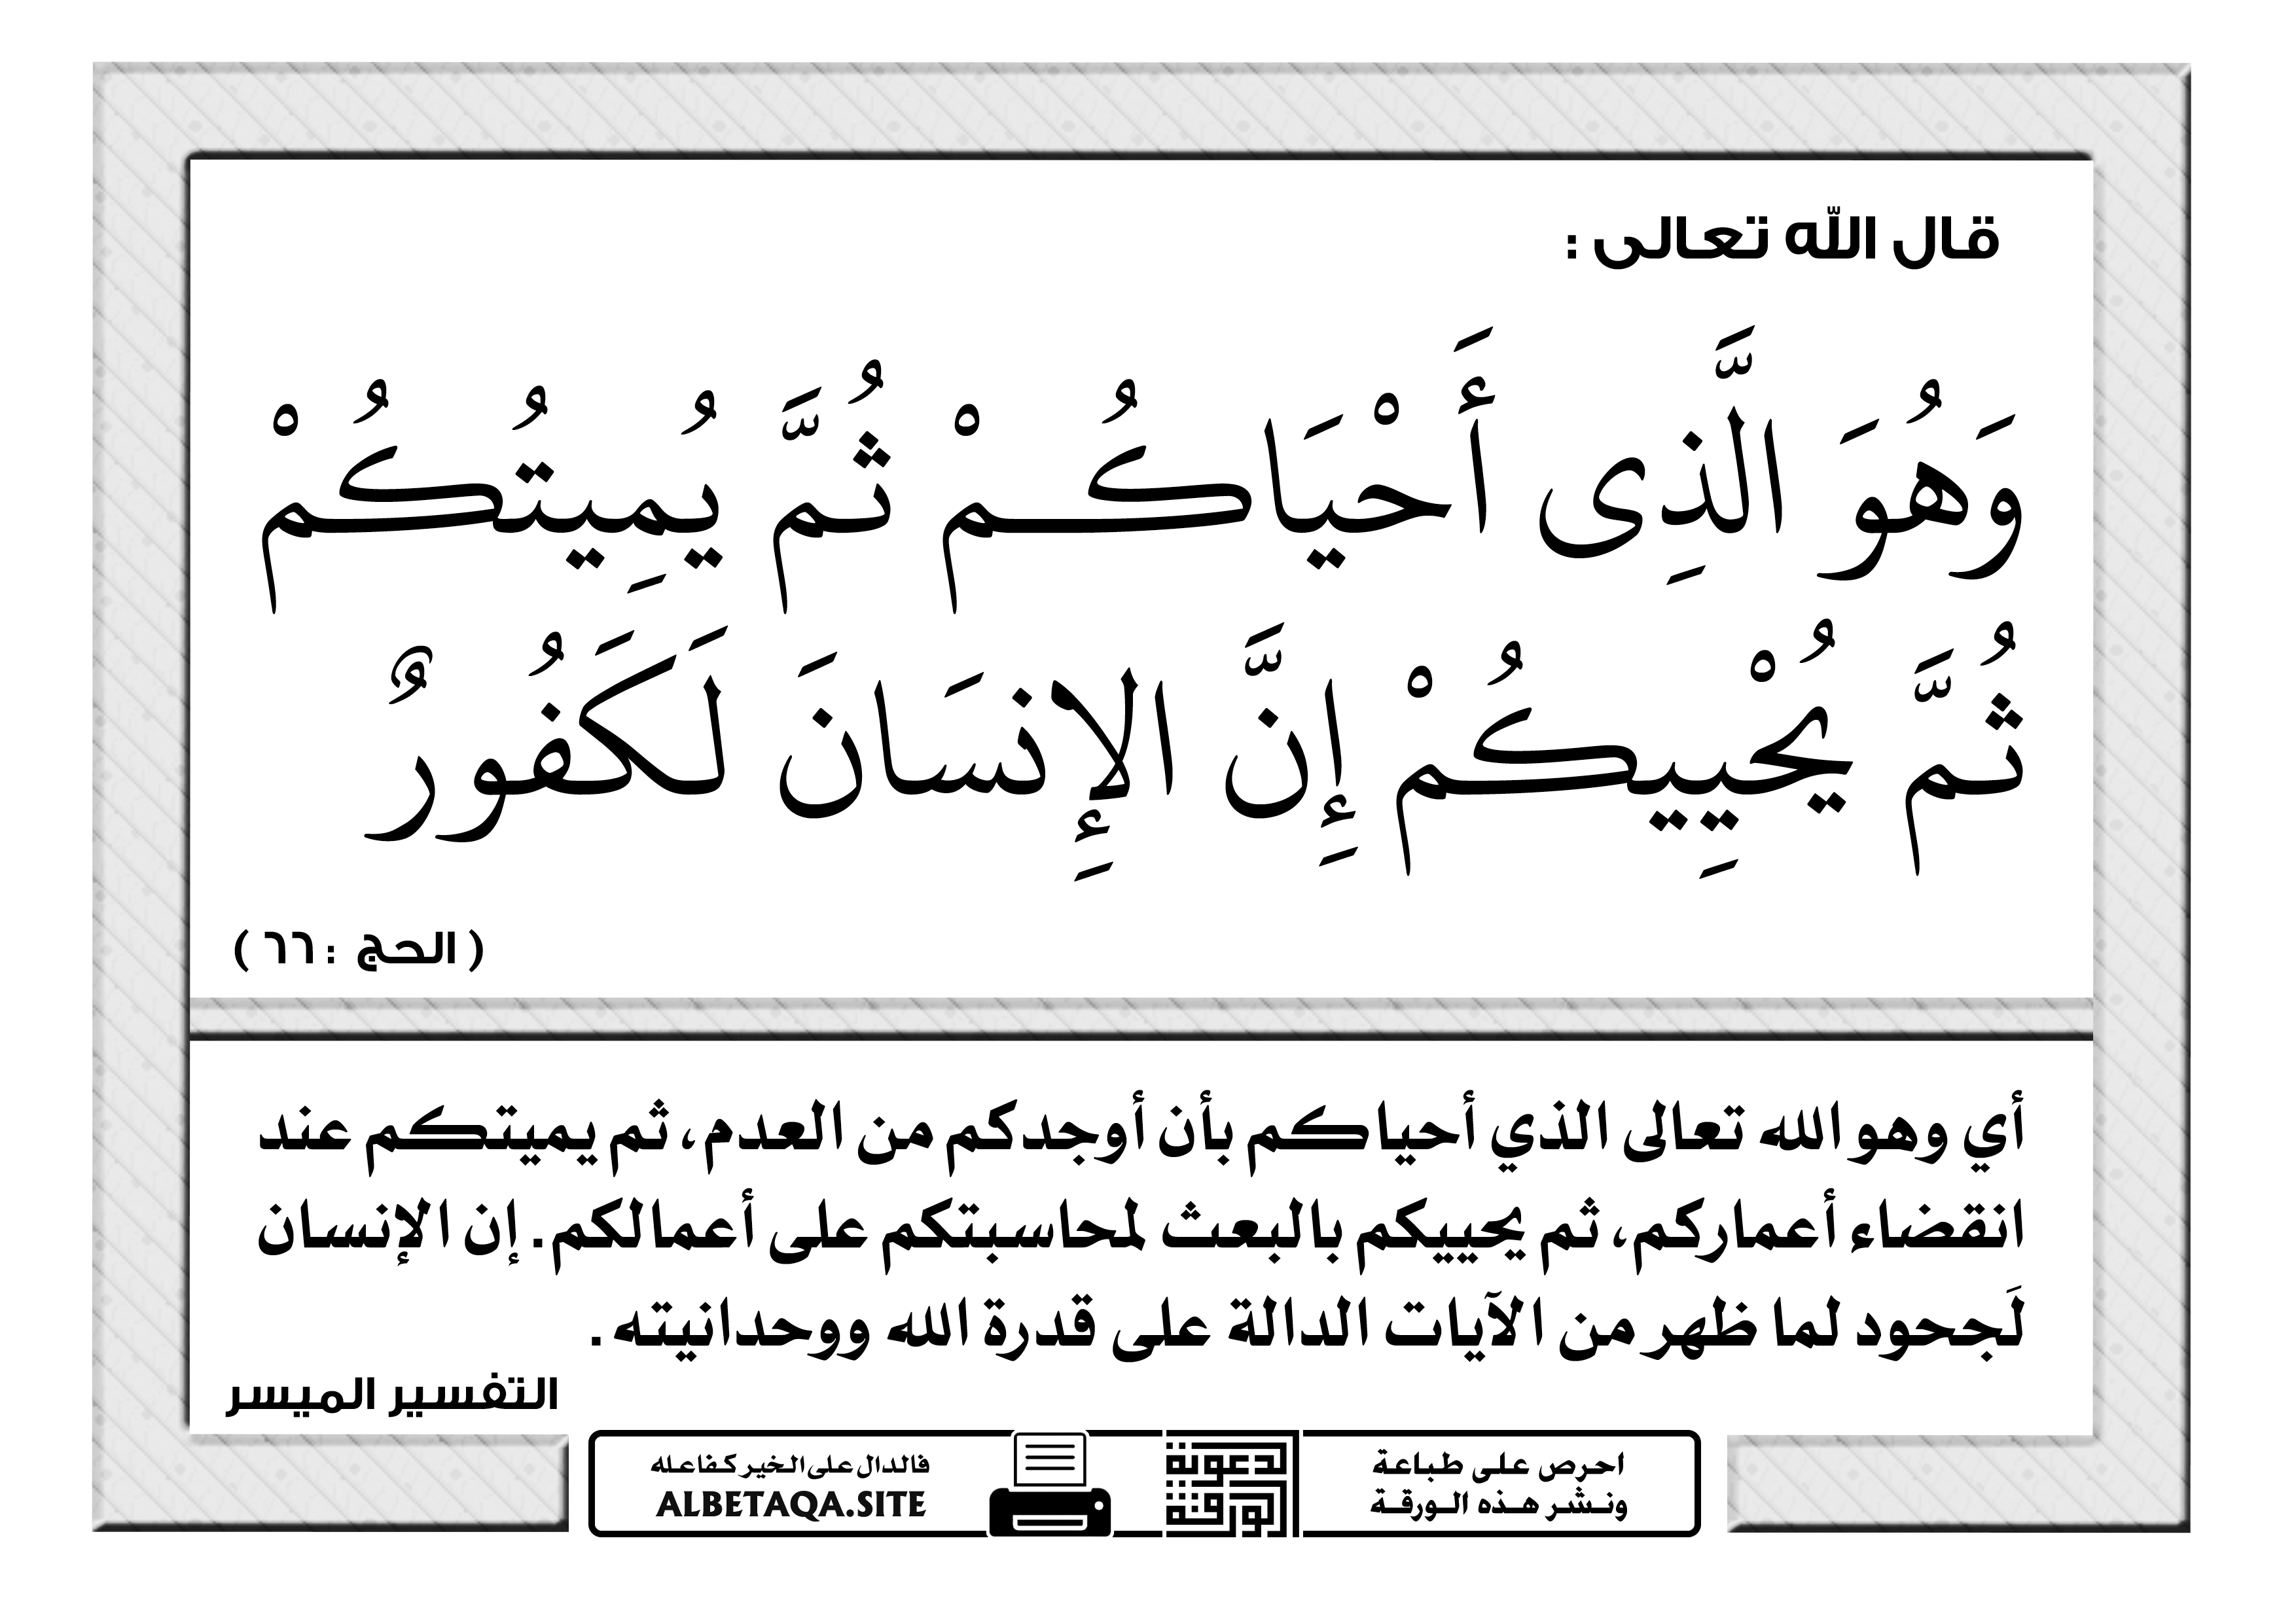 قال الله تعالى :
وَهُوَ الَّذِى أَحْيَاكُمْ ثُمَّ يُمِيتُكُمْ
ثُمَّ يُحْيِيكُمْ إِنَّ الإِنسَانَ لَكَفُورٌ
( الحج : ٦٦ )
أي وهو الله تعالى الذي أحياكم بأن أوجدكم من العدم، ثم يميتكم عند
انقضاء أعماركم، ثم يحييكم بالبعث لمحاسبتكم على أعمالكم. إن الإنسان
لَجحود لما ظهر من الآيات الدالة على قدرة الله ووحدانيته.
التفسير الميسر
احرص على طباعة
ونشر هذه الورقة
لدعوية
الورقية
فالدال على الخير كفاعله
ALBETAQA.SITE